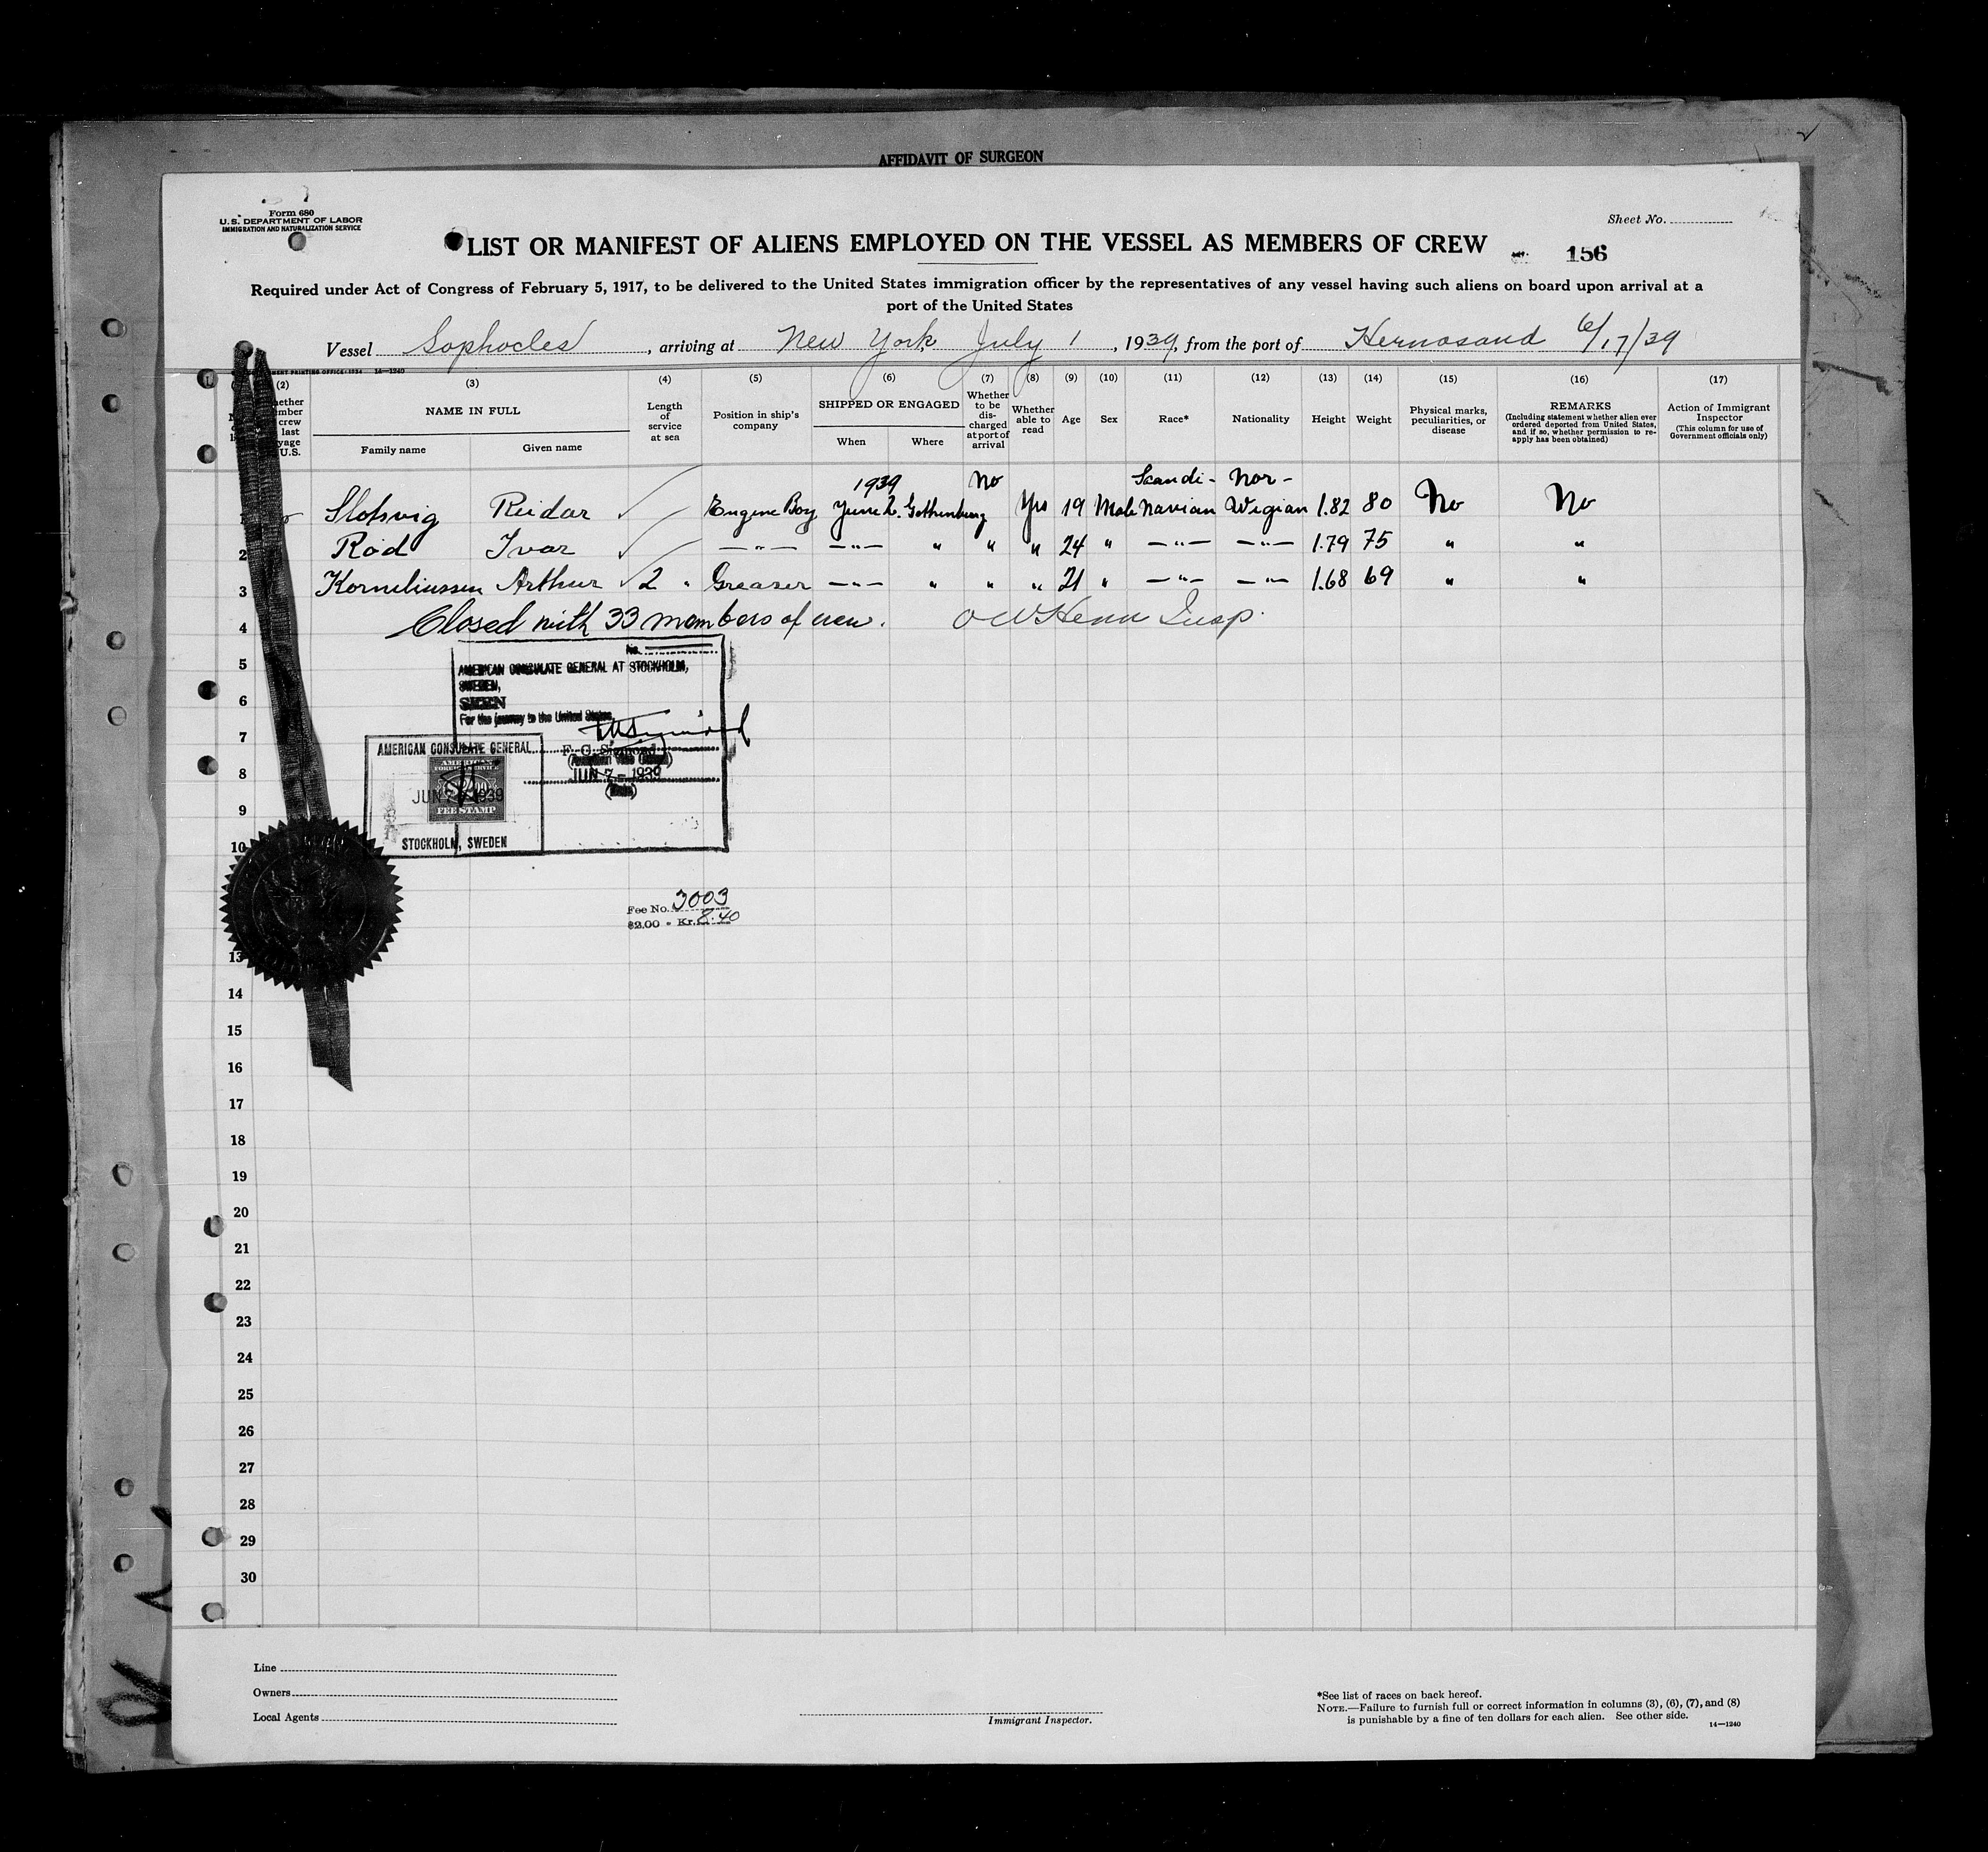 AFFIDAVIT OF SURGEON
Form 680
U.S. DEPARTMENT OF LABOR
IMMIGRATION AND NATURALIZATION SERVICE
Sheet No.
LIST OR MANIFEST OF ALIENS EMPLOYED ON THE VESSEL AS MEMBERS OF CREW
156
Required under Act of Congress of February 5, 1917, to be delivered to the United States immigration officer by the representatives of any vessel having such aliens on board upon arrival at a
port of the United States
Vessel Sophocles, arriving at New York July 1, 1939, from the port of Hernosand 6/17/39
PRINTING OFFICE: 1934 14—1240
(2) (3) (4) (5) (6) (7) (8) (9) (10) (11) (12) (13) (14) (15) (16) (17)
NAME IN FULL
Family name Given name
Length of service at sea
Position in ship's company
SHIPPED OR ENGAGED
When Where
Whether to be discharged at port of arrival
Whether able to read
Age
Sex
Race*
Nationality
Height
Weight
Physical marks, peculiarities, or disease
REMARKS
(Including statement whether alien ever ordered deported from United States, and if so, whether permission to reapply has been obtained)
Action of Immigrant Inspector
(This column for use of Government officials only)
1939 No Scandi- Nor-
Slotsvig Reidar Engene Boy June 2. Gothenburg Yes 19 Male navian Wegian 1.82 80 No No
2 Rød Ivar —"— —"— " " " 24 " —"— —"— 1.79 75 " "
3 Korneliussen Arthur 2 " Greaser —"— " " " 21 " —"— —"— 1.68 69 " "
4 Closed with 33 members of crew. Insp.
5
No.
AMERICAN CONSULATE GENERAL AT STOCKHOLM,
SWEDEN,
6
SEEN
For the journey to the United States
7
AMERICAN CONSULATE GENERAL
JUN 7 - 1939
(Date)
8
AMERICAN
FOREIGN SERVICE
JUN 7 1939
FEE STAMP
9
10
STOCKHOLM, SWEDEN
Fee No. 3003
$2.00 = Kr. 8.40
13
14
15
16
17
18
19
20
21
22
23
24
25
26
27
28
29
30
Line
Owners
Local Agents
Immigrant Inspector.
*See list of races on back hereof.
NOTE.—Failure to furnish full or correct information in columns (3), (6), (7), and (8)
is punishable by a fine of ten dollars for each alien. See other side.
14—1240